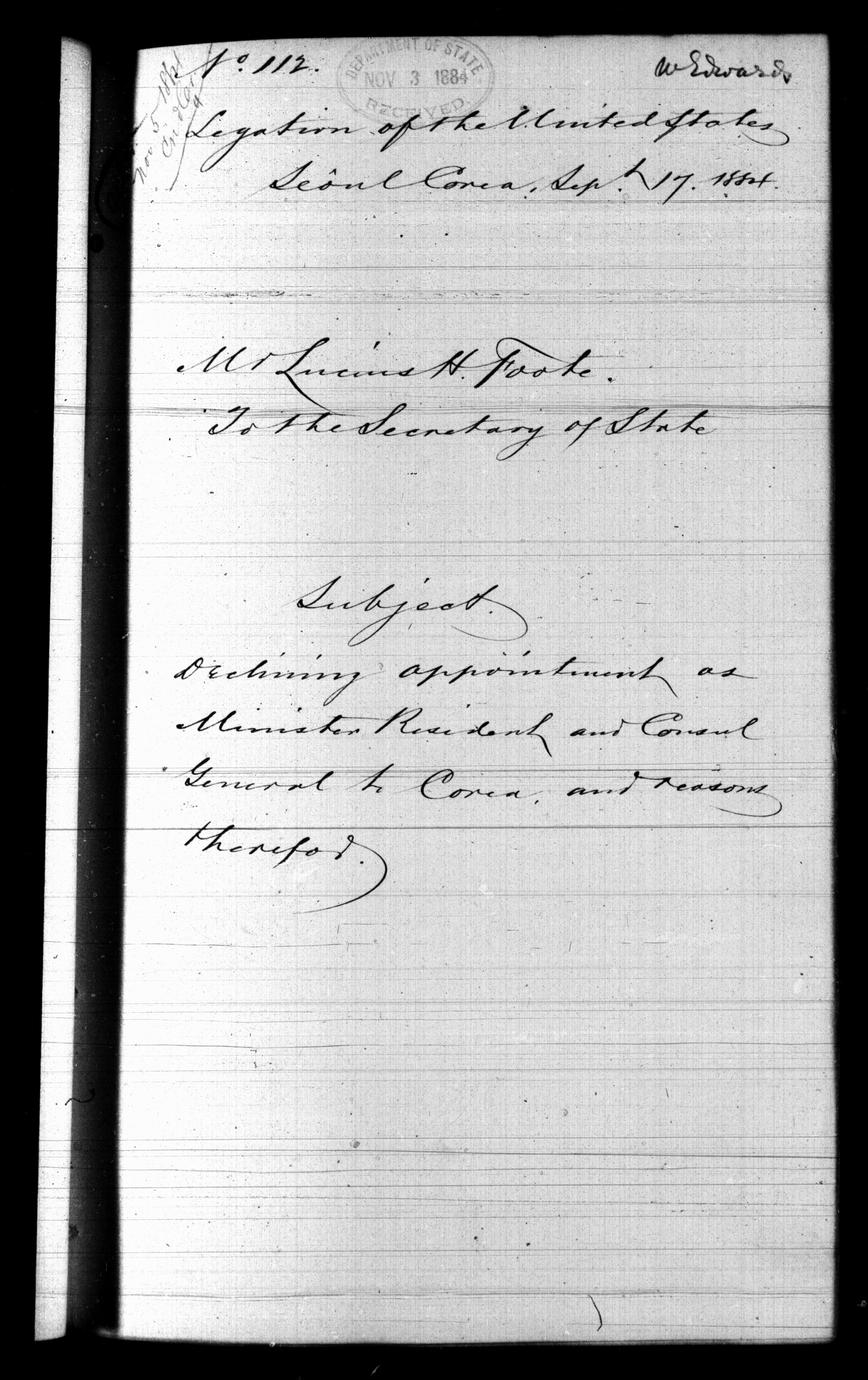 No. 112.
W Edwards
DEPARTMENT OF STATE
NOV 3 1884
RECEIVED.
Nov 5 1884
Legation of the United States
Seôul Corea, Sept. 17. 1884.
Mr Lucius H. Foote.
To the Secretary of State
Subject.
Declining appointment as
Minister Resident and Consul
General to Corea, and reasons
therefor.